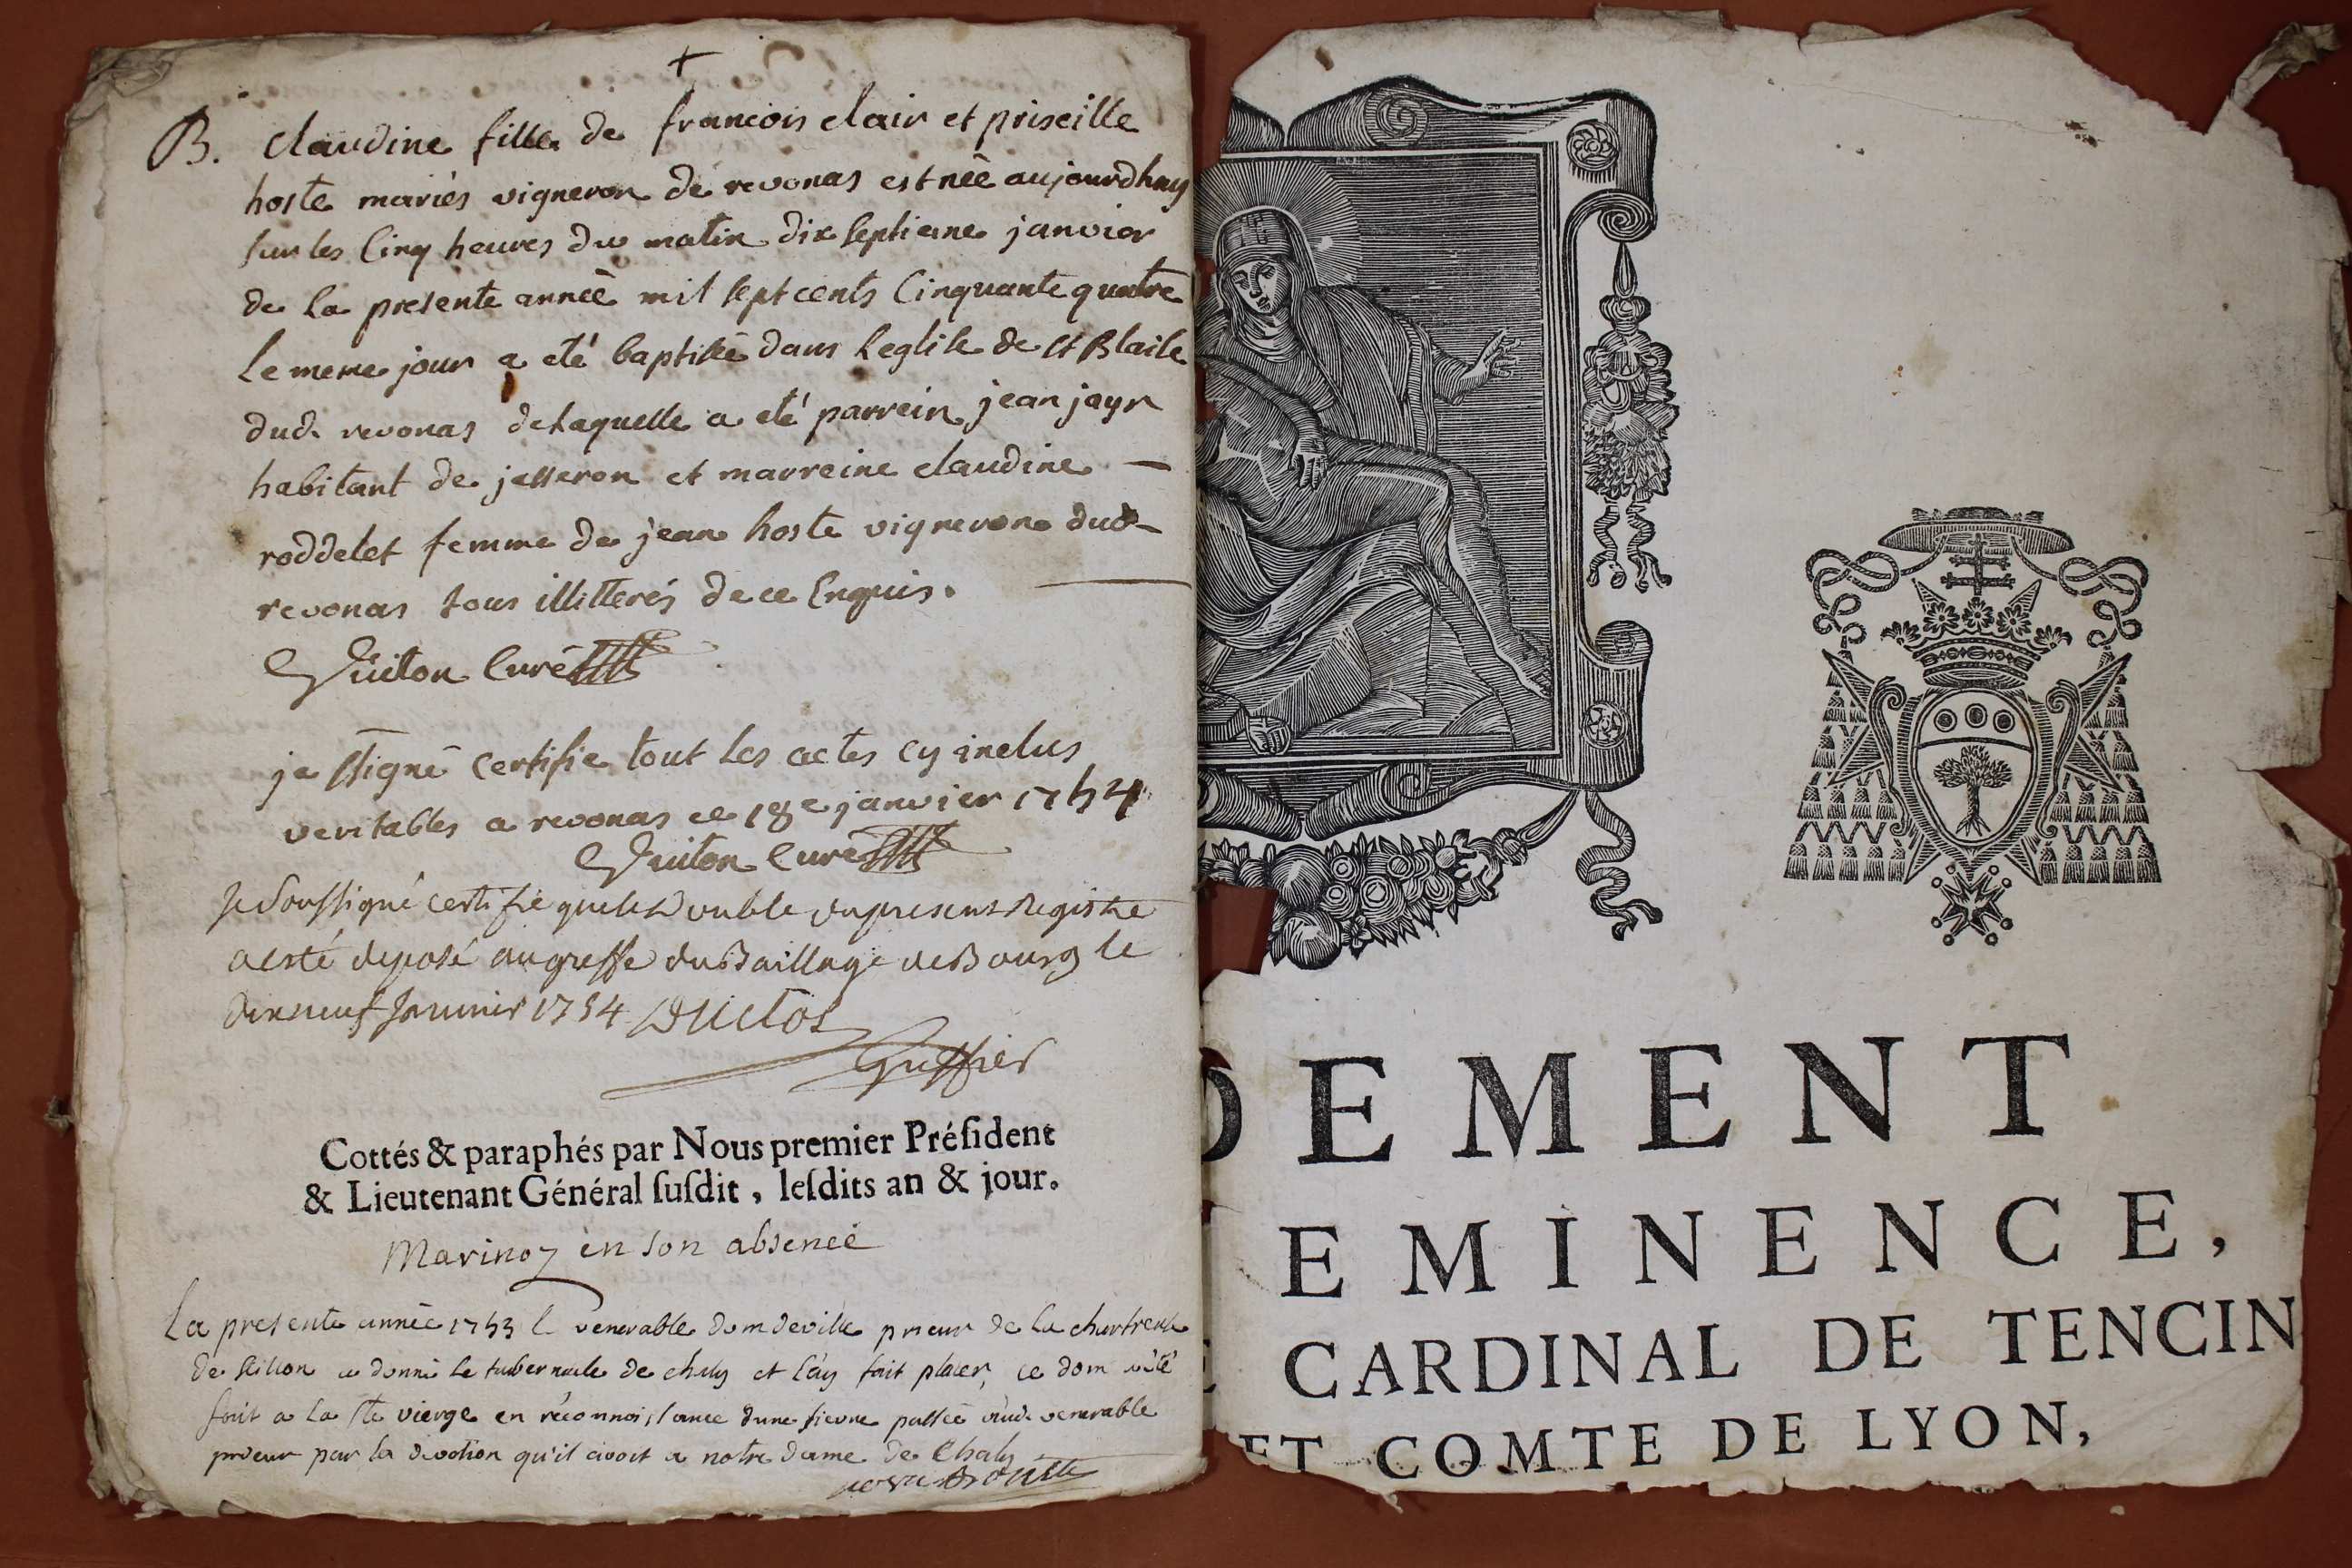 +
B. claudine fille de francois clair et priscille
hoste mariés vigneron de revonas est née aujourdhuy
sur les cinq heures du matin dix septieme janvier
de la presente année mil sept cents cinquante quatre
le meme jour a eté baptisée dans leglise de st Blaise
dud. revonas de laquelle a eté parrein jean jayr
habitant de jasseron et marreine claudine —
roddelet femme de jean hoste vigneron dud
revonas tous illitterés de ce enquis.
Guiton curé
je ssigné certifie tout les actes cy inclus
veritables a revonas ce 18e janvier 1754
Guiton curé
Je soussigné certifie que le double du present Registre
a esté deposé au greffe du Baillage de Bourg le
dix neuf Janvier 1754 Duclos
Greffier
Cottés & paraphés par Nous premier Préſident
& Lieutenant Général ſuſdit, leſdits an & jour.
Marinoz en son absence
La presente année 1753 l venerable dom deville prieur de la chartreuse
de seillon a donné le tabernacle de chaly et l'ay fait placer, ce dom a été
fait a la ste vierge en réconnoissance dune fievre passée aud. venerable
prieur par la devotion qu'il avoit a notre dame de Chaly
DEMENT
EMINENCE,
CARDINAL DE TENCIN
ET COMTE DE LYON,